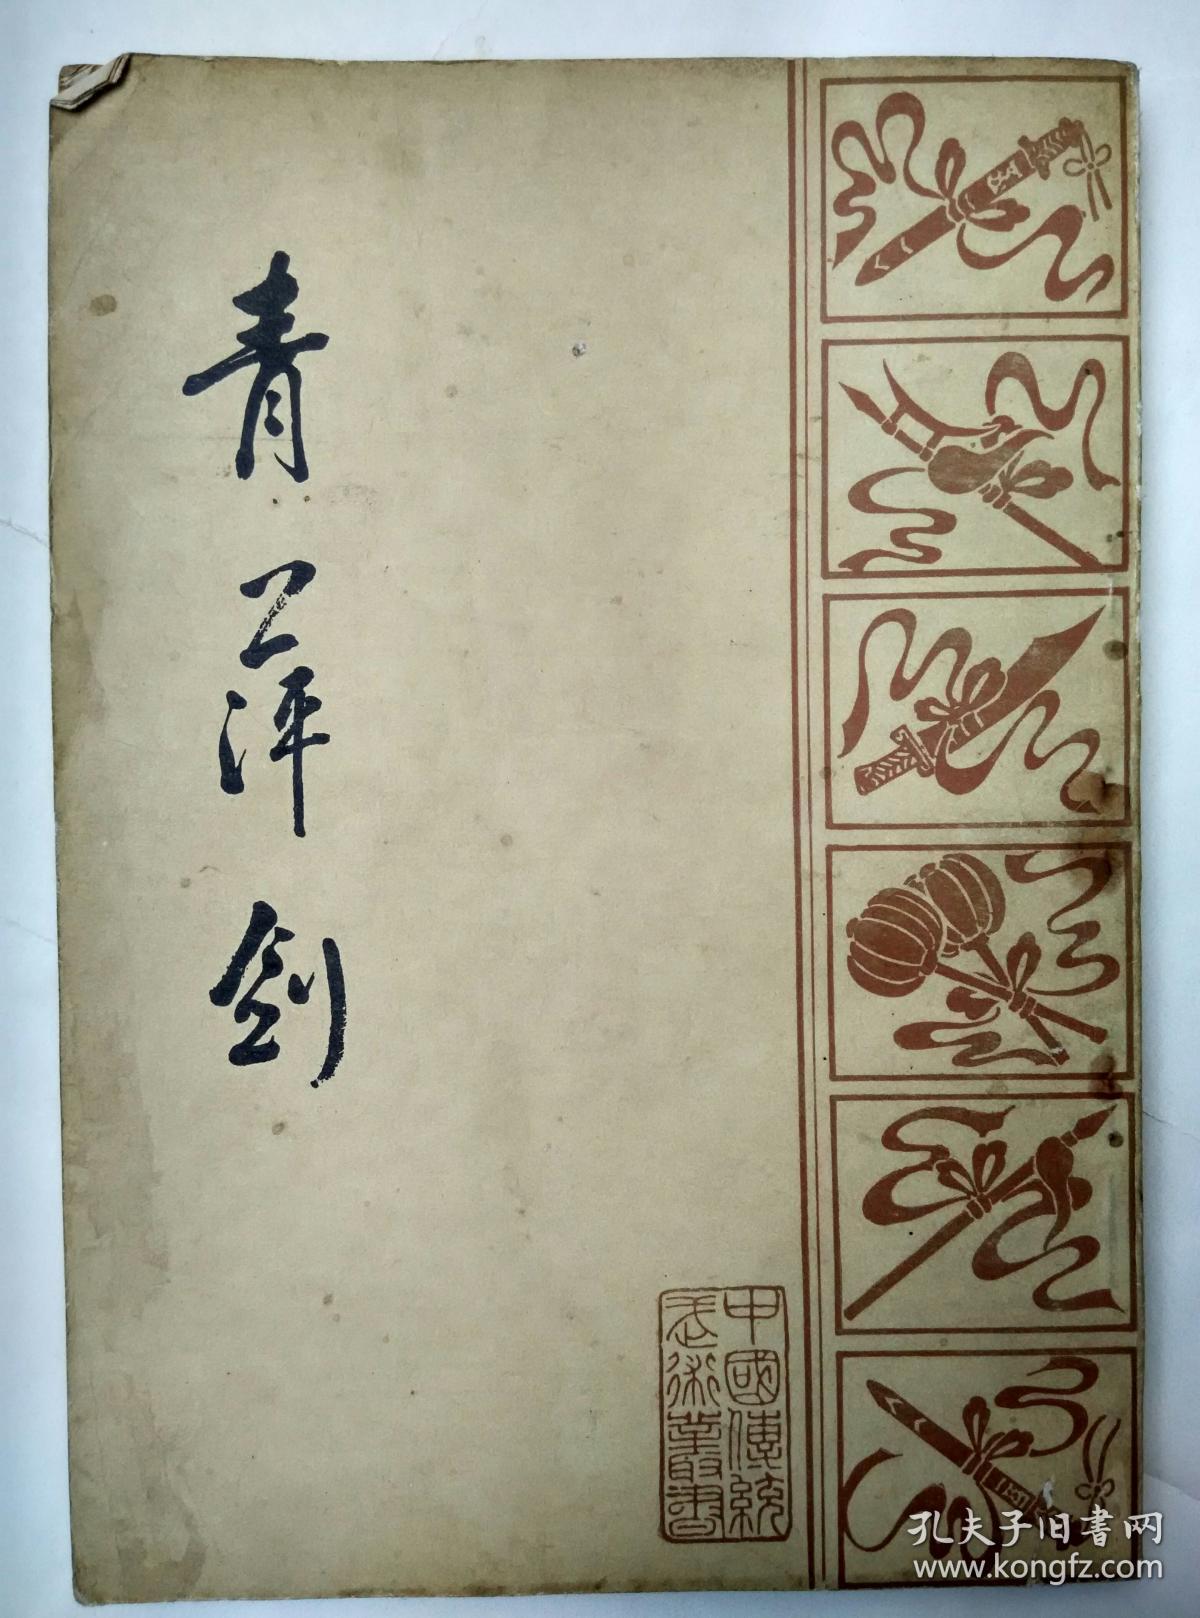 青萍剑
中國傳統
武術叢書
孔夫子旧書网
www.kongfz.com